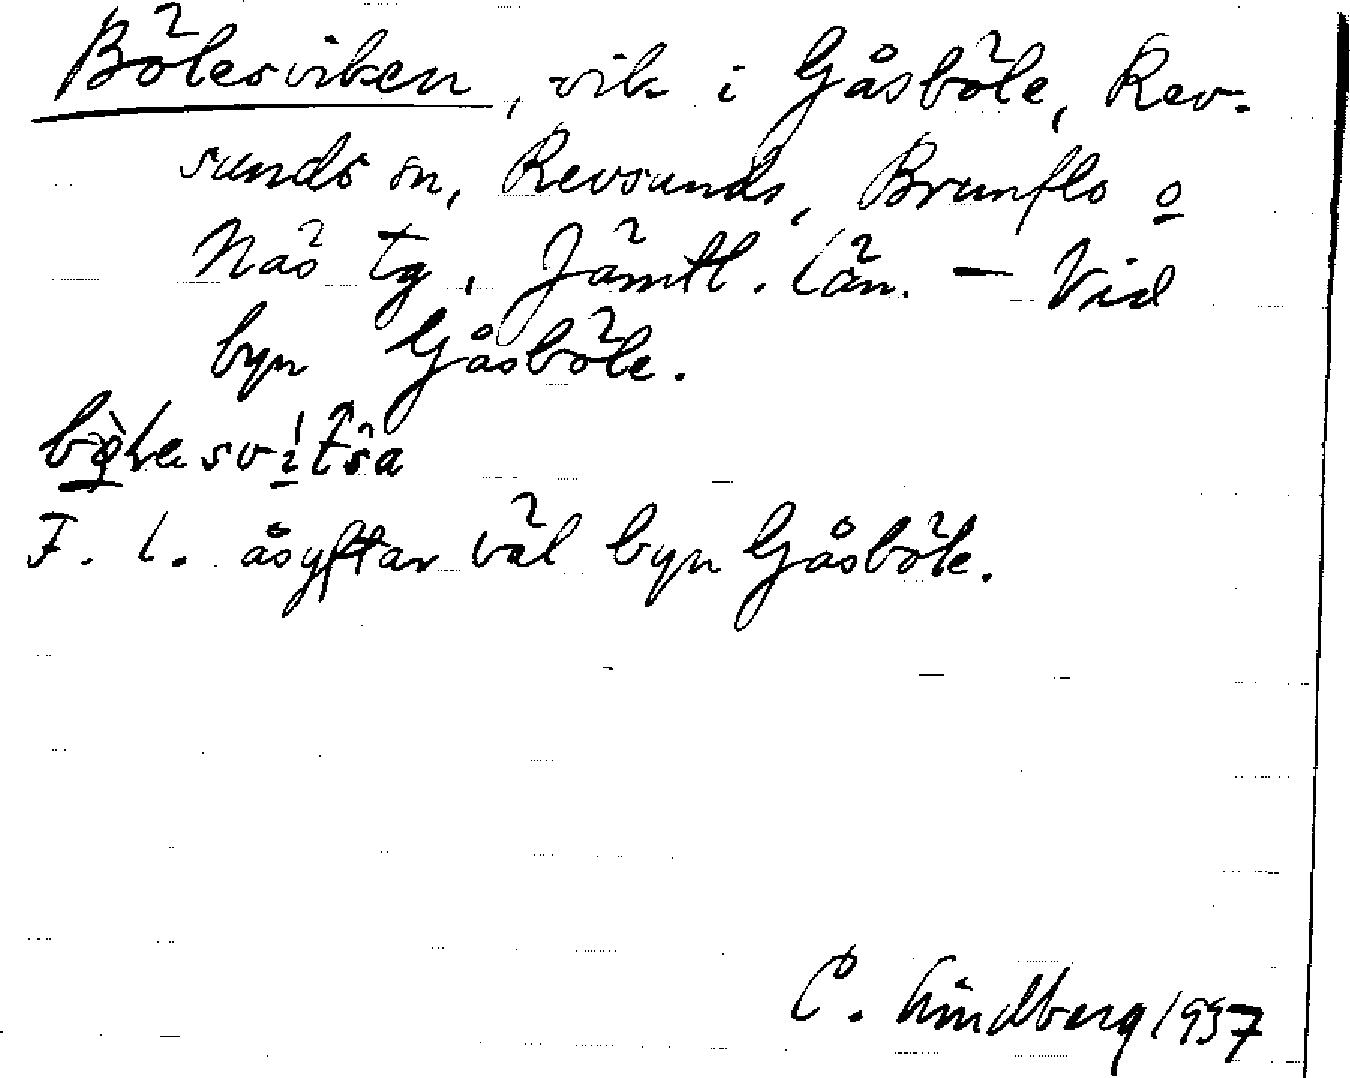 Bölesviken, vik i Gåsböle, Rev-
sunds sn, Revsunds, Brunflo o
Näs tg, Jämtl. län. — Vid
byn Gåsböle.
F. l. åsyftar väl byn Gåsböle.
C. Lindberg 1937